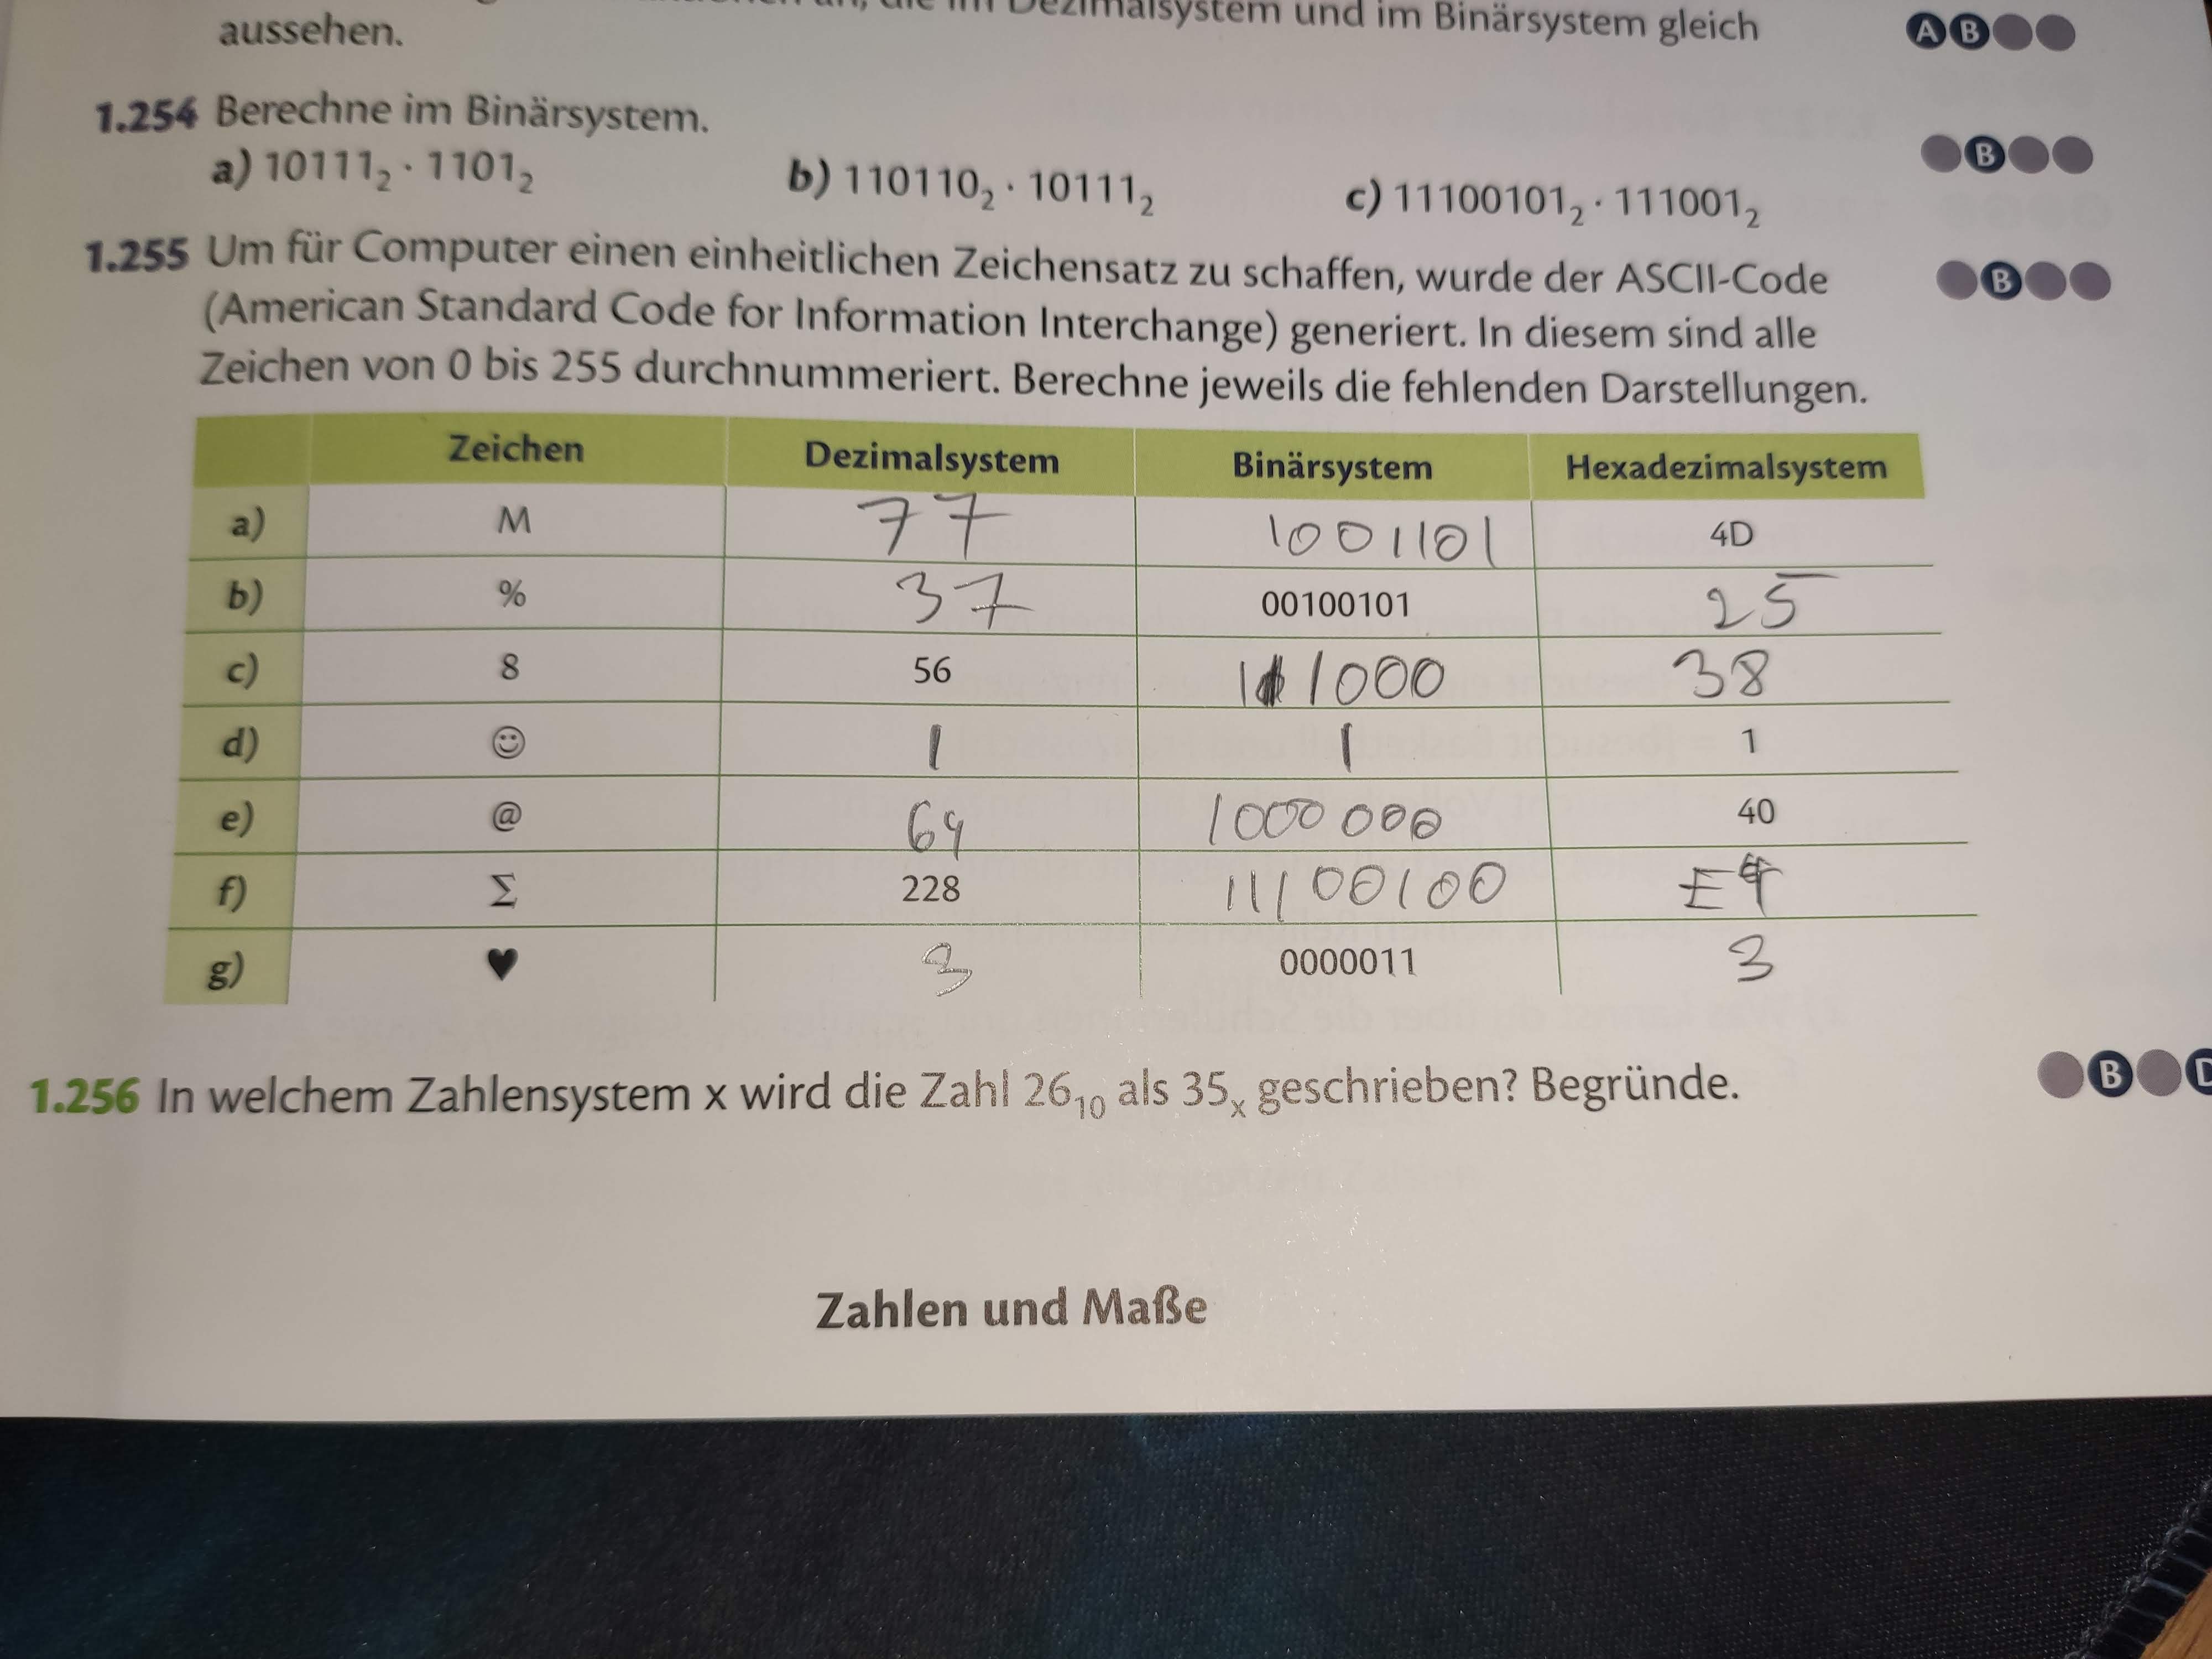 aussehen.
1.254 Berechne im Binärsystem.
a) 10111₂ · 1101₂ b) 110110₂ · 10111₂ c) 11100101₂ · 111001₂
1.255 Um für Computer einen einheitlichen Zeichensatz zu schaffen, wurde der ASCII-Code
(American Standard Code for Information Interchange) generiert. In diesem sind alle
Zeichen von 0 bis 255 durchnummeriert. Berechne jeweils die fehlenden Darstellungen.
Zeichen Dezimalsystem Binärsystem Hexadezimalsystem
a) M 77 1001101 4D
b) % 37 00100101 25
c) 8 56 111000 38
d) ☺ 1 1 1
e) @ 64 1000000 40
f) Σ 228 11100100 E4
g) ♥ 3 0000011 3
1.256 In welchem Zahlensystem x wird die Zahl 26₁₀ als 35ₓ geschrieben? Begründe.
Zahlen und Maße
A B
B
B
B